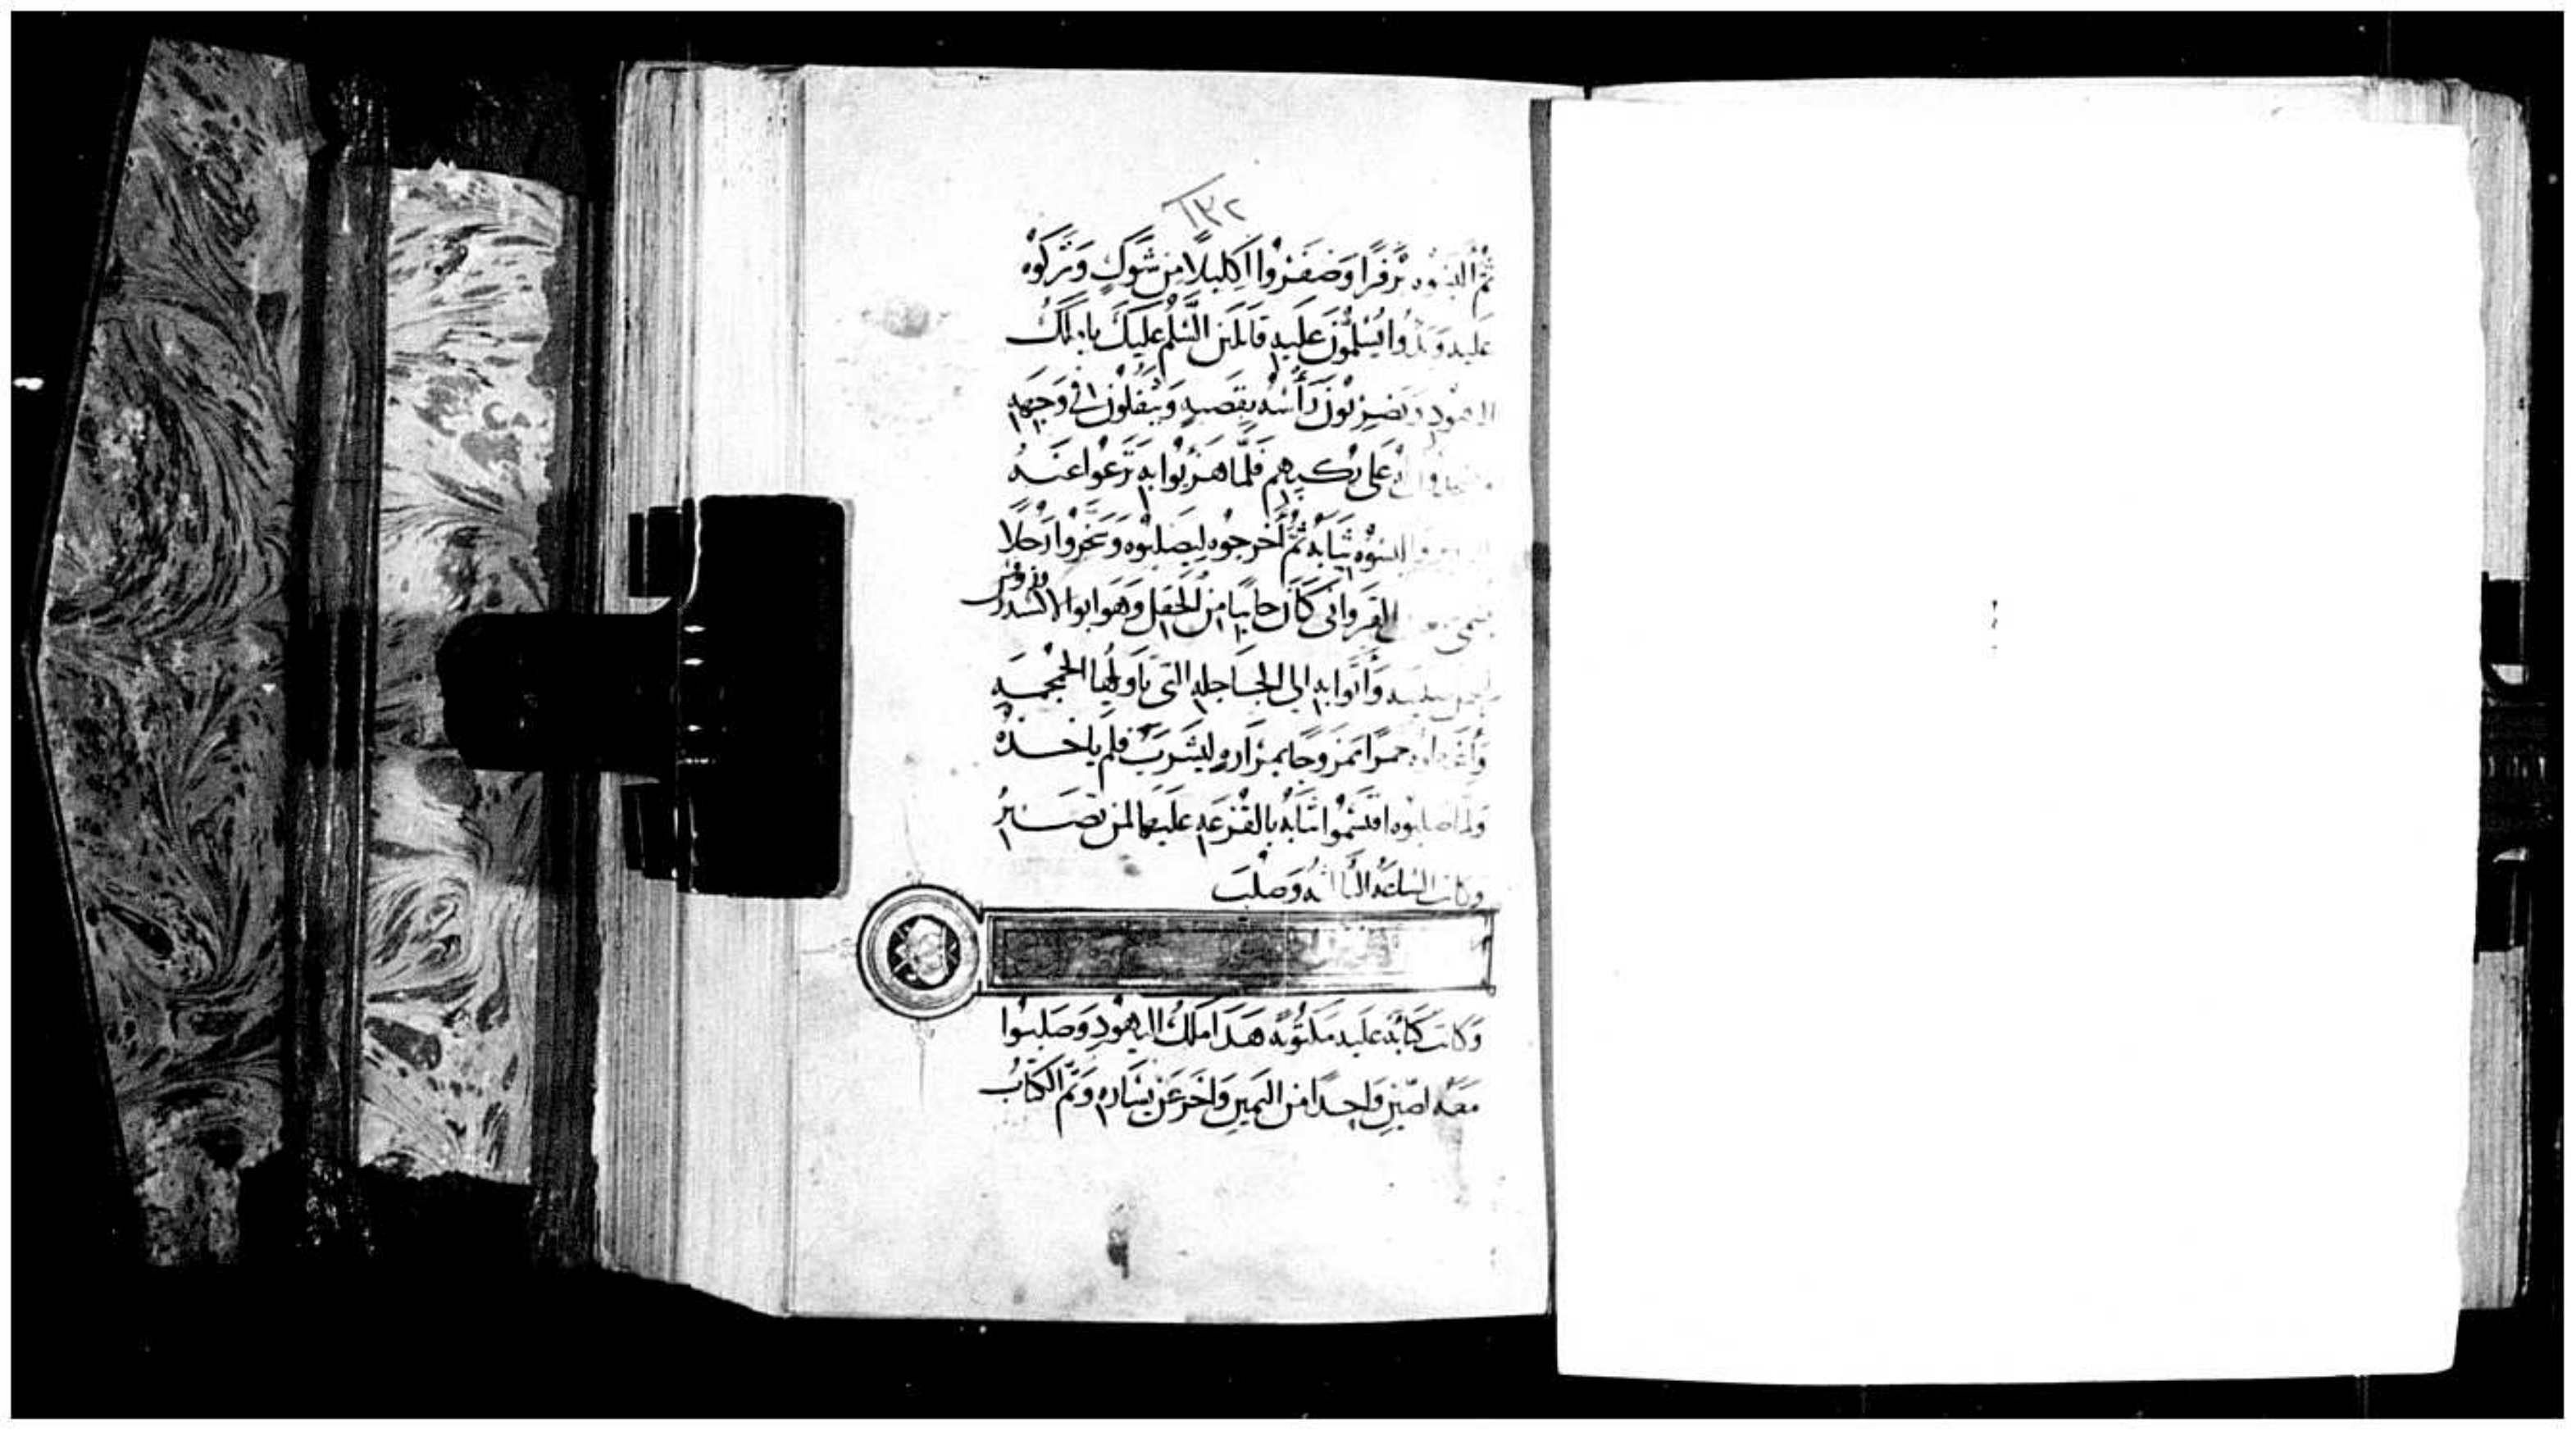 ١٣٢
ثم البسوه برفرا وضفروا اكليلا من شوك وتركوه
عليه وبدوا يسلمون عليه قائلين السلم عليك يا ملك
اليهود ويضربون رأسه بقصبه ويتفلون في وجهه
على ركبهم فلما هزوا به نزعوا عنه
البسوه ثيابه ثم أخرجوه ليصلبوه وسخروا رجلا
القرواني كان جائيا من الحقل وهو ابوالاكسندروس
وروفس
صليبه وأتوا به الى الجاجله التي تاويلها الجمجمه
وأعطوه خمرا ممزوجا بمراره ليشرب فلم ياخذه
ولما صلبوه اقتسموا ثيابه بالقرعه عليها لمن تصير
وكانت الساعه الثالثه وصلب
وكانت كتابة عليه مكتوبه هذا ملك اليهود وصلبوا
معه لصين واحدا من اليمين واخر عن يساره وتم الكتاب